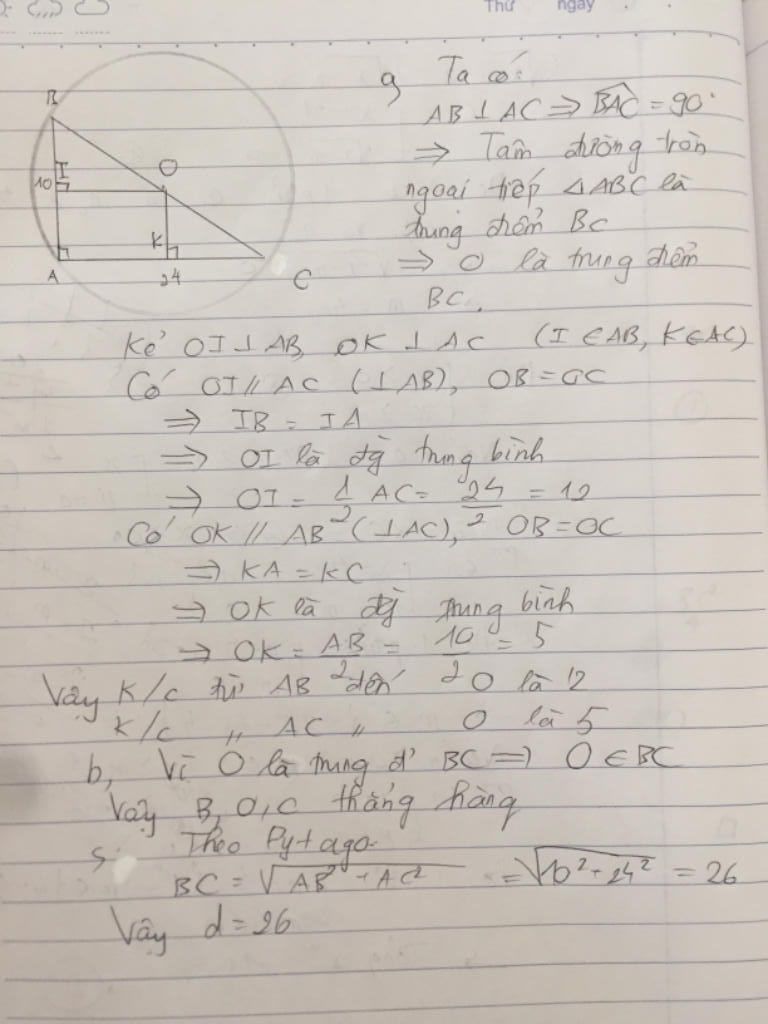 Thứ ngày
B
I
O
10
K
A
24
C
a, Ta có:
AB ⊥ AC ⇒ BAC = 90°
⇒ Tâm đường tròn
ngoại tiếp △ABC là
trung điểm BC
⇒ O là trung điểm
BC.
Kẻ OI ⊥ AB, OK ⊥ AC (I ∈ AB, K ∈ AC)
Có OI // AC (⊥ AB), OB = OC
⇒ IB = IA
⇒ OI là đg̀ trung bình
⇒ OI = 1/2 AC = 24/2 = 12
Có OK // AB (⊥ AC), OB = OC
⇒ KA = KC
⇒ OK là đg̀ trung bình
⇒ OK = AB/2 = 10/2 = 5
Vậy K/c từ AB đến O là 12
K/c " AC " O là 5
b, Vì O là trung đ' BC ⇒ O ∈ BC
Vậy B, O, C thẳng hàng
Theo Pytago
BC = √AB² + AC² = √10² + 24² = 26
Vậy d = 26